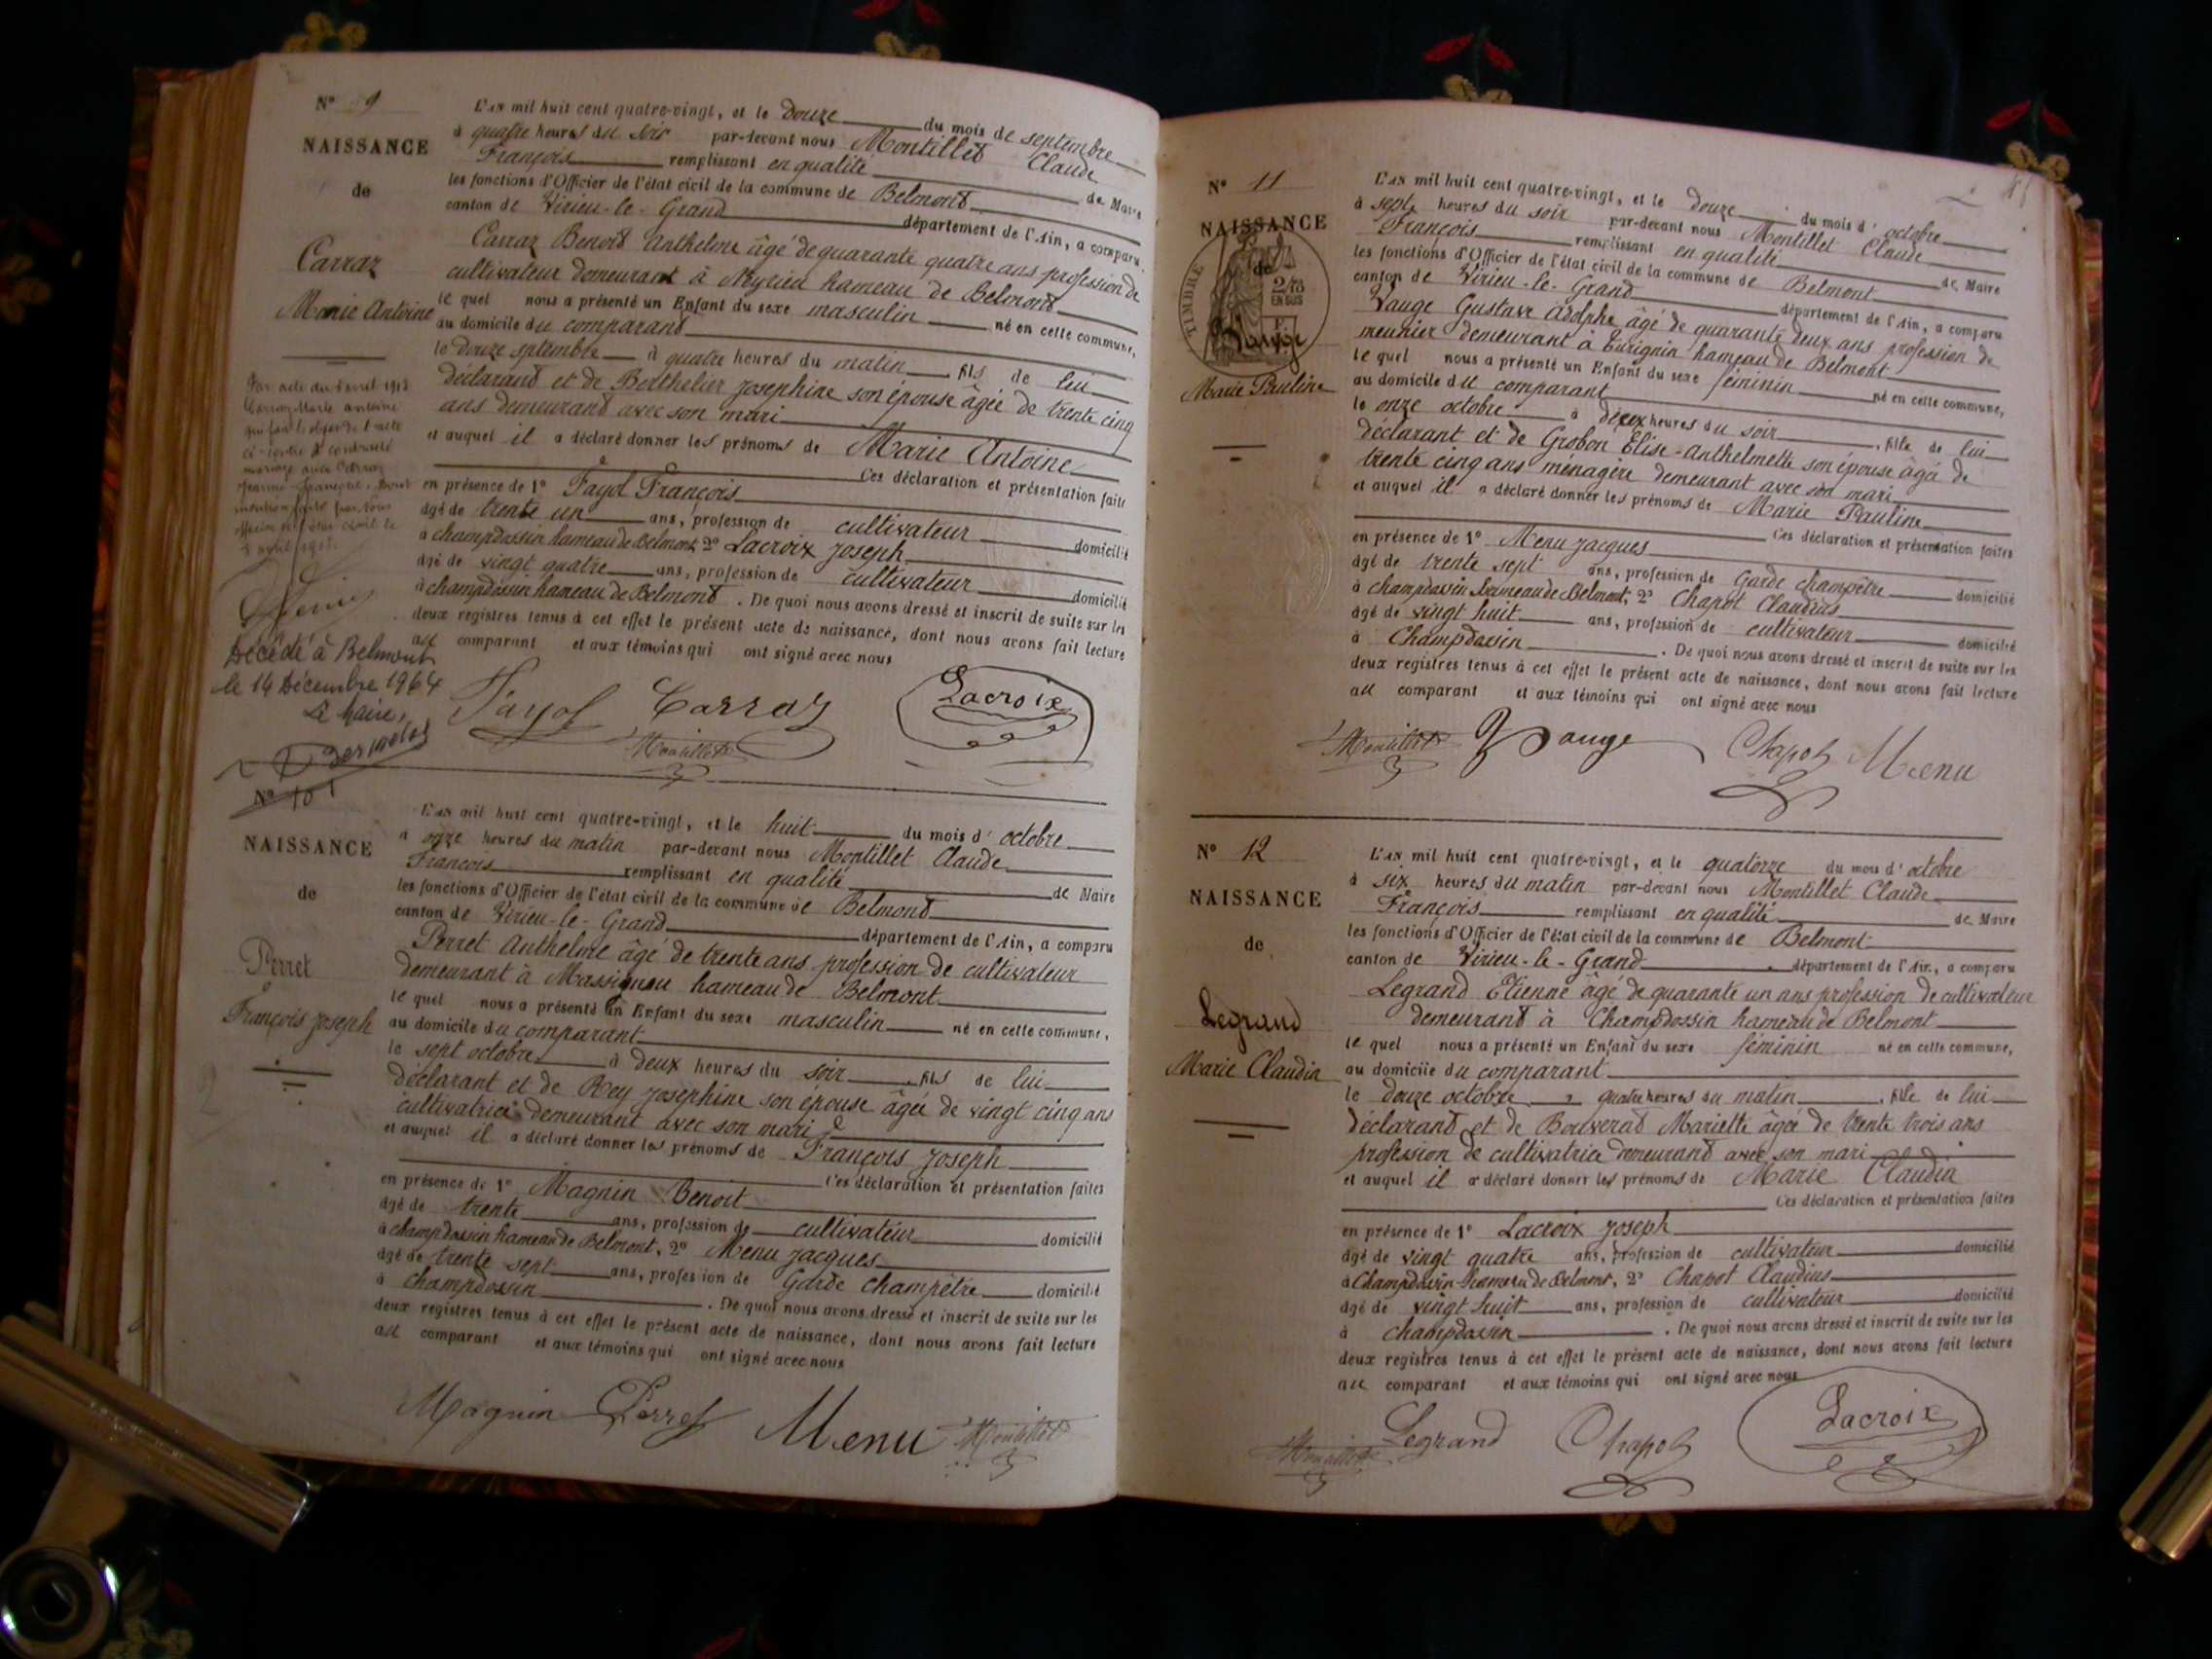 N° 9
NAISSANCE
de
Carraz
Marie Antoine
Par acte du 5 avril 1913
Carraz Marie antoine
qui fait l'objet de l'acte
ci-contre a contracté
mariage avec
mention faite par nous
officier de l'état civil le
Décédé à Belmont
le 14 Décembre 1964
Le Maire,
L'AN mil huit cent quatre-vingt, et le douze du mois de septembre
à quatre heures du soir par-devant nous Montillet Claude
François remplissant en qualité de Maire
les fonctions d'Officier de l'état civil de la commune de Belmont
canton de Virieu-le-Grand département de l'Ain, a comparu
Carraz Benoit Anthelme âgé de quarante quatre ans profession de
cultivateur demeurant à Meyrieu hameau de Belmont
lequel nous a présenté un Enfant du sexe masculin né en cette commune,
au domicile du comparant
le douze septembre à quatre heures du matin fils de lui
déclarant et de Berthelier Josephine son épouse âgée de trente cinq
ans demeurant avec son mari
et auquel il a déclaré donner les prénoms de Marie Antoine
Ces déclaration et présentation faite
en présence de 1° Fayol François
âgé de trente un ans, profession de cultivateur domicilié
à champdossin hameau de Belmont, 2° Lacroix Joseph
âgé de vingt quatre ans, profession de cultivateur domicilié
à champdossin hameau de Belmont. De quoi nous avons dressé et inscrit de suite sur les
deux registres tenus à cet effet le présent acte de naissance, dont nous avons fait lecture
au comparant et aux témoins qui ont signé avec nous
Fayol Carraz Lacroix
Montillet
N° 10
NAISSANCE
de
Perret
François Joseph
L'AN mil huit cent quatre-vingt, et le huit du mois d'octobre
à onze heures du matin par-devant nous Montillet Claude
François remplissant en qualité de Maire
les fonctions d'Officier de l'état civil de la commune de Belmont
canton de Virieu-le-Grand département de l'Ain, a comparu
Perret Anthelme âgé de trente ans profession de cultivateur
demeurant à Massignieu hameau de Belmont
lequel nous a présenté un Enfant du sexe masculin né en cette commune,
au domicile du comparant
le sept octobre à deux heures du soir fils de lui
déclarant et de Rey Josephine son épouse âgée de vingt cinq ans
cultivatrice demeurant avec son mari
et auquel il a déclaré donner les prénoms de François Joseph
Ces déclaration et présentation faites
en présence de 1° Magnin Benoit
âgé de trente ans, profession de cultivateur domicilié
à champdossin hameau de Belmont, 2° Menu Jacques
âgé de trente sept ans, profession de Garde champêtre domicilié
à champdossin. De quoi nous avons dressé et inscrit de suite sur les
deux registres tenus à cet effet le présent acte de naissance, dont nous avons fait lecture
au comparant et aux témoins qui ont signé avec nous
Magnin Perret Menu Montillet
N° 11
NAISSANCE
de
TIMBRE
2/10
EN SUS
Vauge
Marie Pauline
L'AN mil huit cent quatre-vingt, et le douze du mois d'octobre
à sept heures du soir par-devant nous Montillet Claude
François remplissant en qualité de Maire
les fonctions d'Officier de l'état civil de la commune de Belmont
canton de Virieu-le-Grand département de l'Ain, a comparu
Vauge Gustave Adolphe âgé de quarante deux ans profession de
meunier demeurant à Eurignin hameau de Belmont
lequel nous a présenté un Enfant du sexe féminin né en cette commune,
au domicile du comparant
le onze octobre à deux heures du soir, fille de lui
déclarant et de Grobon Elise-Anthelmette son épouse âgée de
trente cinq ans ménagère demeurant avec son mari
et auquel il a déclaré donner les prénoms de Marie Pauline
Ces déclaration et présentation faites
en présence de 1° Menu Jacques
âgé de trente sept ans, profession de Garde champêtre domicilié
à champdossin hameau de Belmont, 2° Chapot Claudius
âgé de vingt huit ans, profession de cultivateur domicilié
à Champdossin. De quoi nous avons dressé et inscrit de suite sur les
deux registres tenus à cet effet le présent acte de naissance, dont nous avons fait lecture
au comparant et aux témoins qui ont signé avec nous
Montillet Vauge Chapot Menu
N° 12
NAISSANCE
de
Legrand
Marie Claudin
L'AN mil huit cent quatre-vingt, et le quatorze du mois d'octobre
à six heures du matin par-devant nous Montillet Claude
François remplissant en qualité de Maire
les fonctions d'Officier de l'état civil de la commune de Belmont
canton de Virieu-le-Grand département de l'Ain, a comparu
Legrand Etienne âgé de quarante un ans profession de cultivateur
demeurant à Champdossin hameau de Belmont
lequel nous a présenté un Enfant du sexe féminin né en cette commune,
au domicile du comparant
le douze octobre à quatre heures du matin, fille de lui
déclarant et de Bouverat Mariette âgée de trente trois ans
profession de cultivatrice demeurant avec son mari
et auquel il a déclaré donner les prénoms de Marie Claudin
Ces déclaration et présentation faites
en présence de 1° Lacroix Joseph
âgé de vingt quatre ans, profession de cultivateur domicilié
à Champdossin hameau de Belmont, 2° Chapot Claudius
âgé de vingt huit ans, profession de cultivateur domicilié
à champdossin. De quoi nous avons dressé et inscrit de suite sur les
deux registres tenus à cet effet le présent acte de naissance, dont nous avons fait lecture
au comparant et aux témoins qui ont signé avec nous
Montillet Legrand Chapot Lacroix